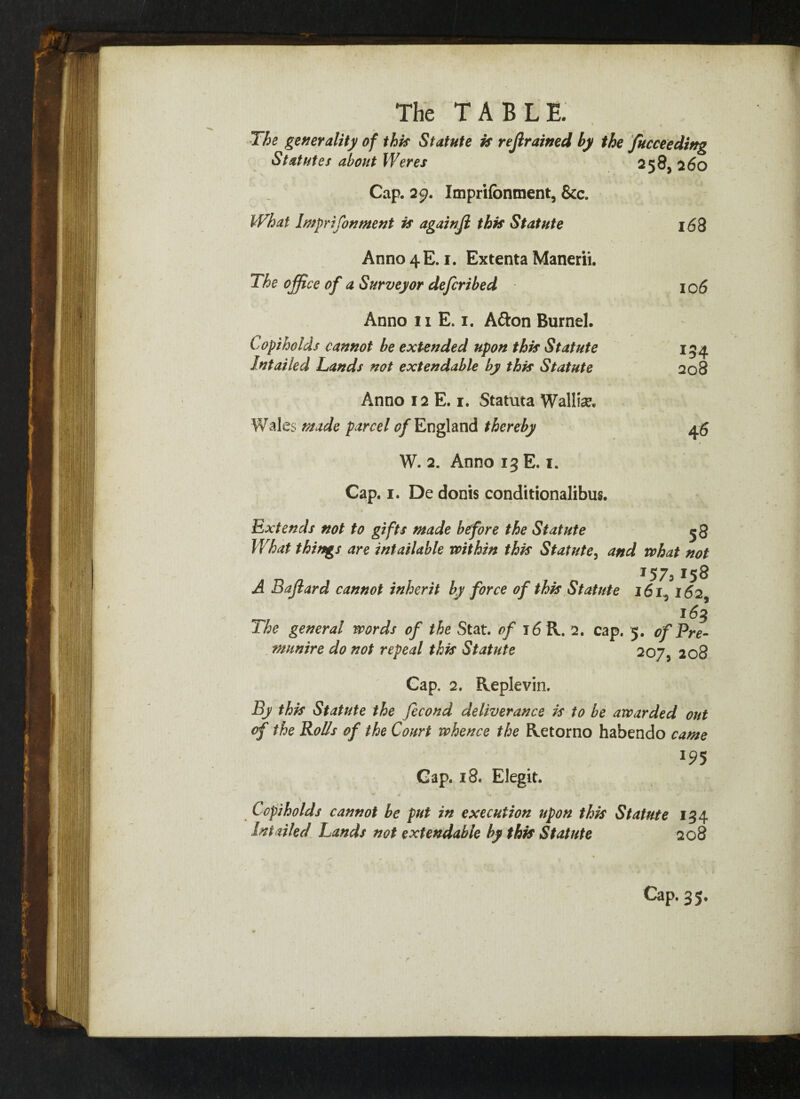 The TABLE.
The generality of this Statute is reſtrained by the ſucceeding
Statutes about Weres 258, 260
Cap. 29. Impriſonment, &c.
What Impriſonment is againſt this Statute 168
Anno 4 E. 1. Extenta Manerii.
The office of a Surveyor deſcribed 106
Anno 11 E. 1. Acton Burnel.
Copiholds cannot be extended upon this Statute 134
Intailed Lands not extendable by this Statute 208
Anno 12 E. 1. Statuta Walliæ.
Wales made parcel of England thereby 46
W. 2. Anno 13 E. 1.
Cap. 1. De donis conditionalibus.
Extends not to gifts made before the Statute 58
What things are intailable within this Statute, and what not
157, 158
A Baſtard cannot inherit by force of this Statute 161, 162,
163
The general words of the Stat. of 16 R. 2. cap. 5. of Pre-
munire do not repeal this Statute 207, 208
Cap. 2. Replevin.
By this Statute the ſecond deliverance is to be awarded out
of the Rolls of the Court whence the Retorno habendo came
195
Cap. 18. Elegit.
Copiholds cannot be put in execution upon this Statute 134
Intailed Lands not extendable by this Statute 208
Cap. 35.